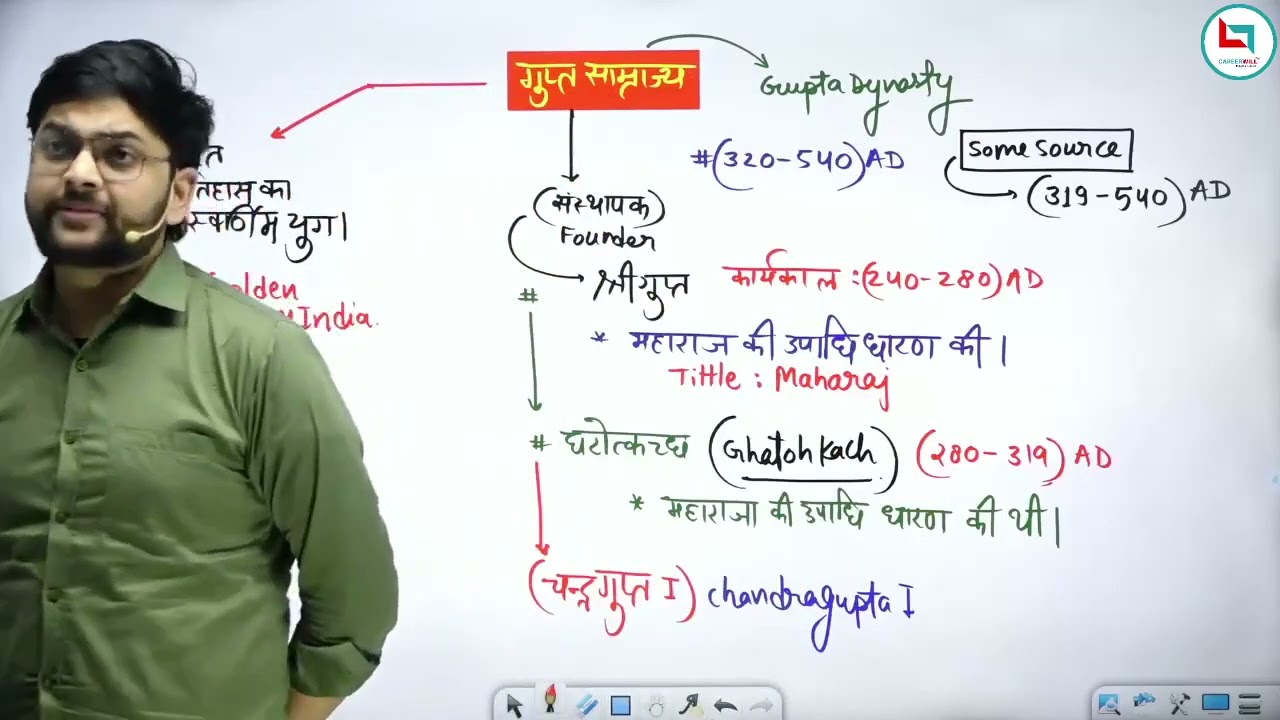 CAREERWILL
गुप्त साम्राज्य
Gupta Dynasty
#(320-540)AD
Some Source
(319-540) AD
त
तिहास का
स्वर्णिम युग।
olden
India.
(संस्थापक)
Founder
# श्रीगुप्त कार्यकाल :(240-280)AD
* महाराज की उपाधि धारण की।
Tittle : Maharaj
# घटोत्कच्छ (Ghatohkach) (280-319) AD
* महाराजा की उपाधि धारण की थी।
(चन्द्रगुप्त I) chandragupta I